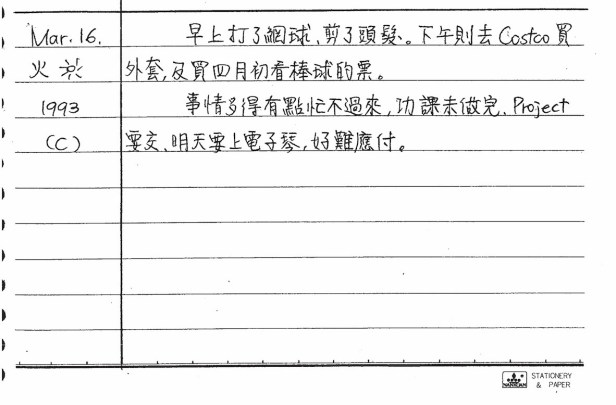 Mar. 16. 早上打了網球、剪了頭髮。下午則去 Costco 買
火 外套,及買四月初看棒球的票。
1993 事情多得有點忙不過來,功課未做完、Project
(C) 要交、明天要上電子琴,好難應付。
STATIONERY
& PAPER